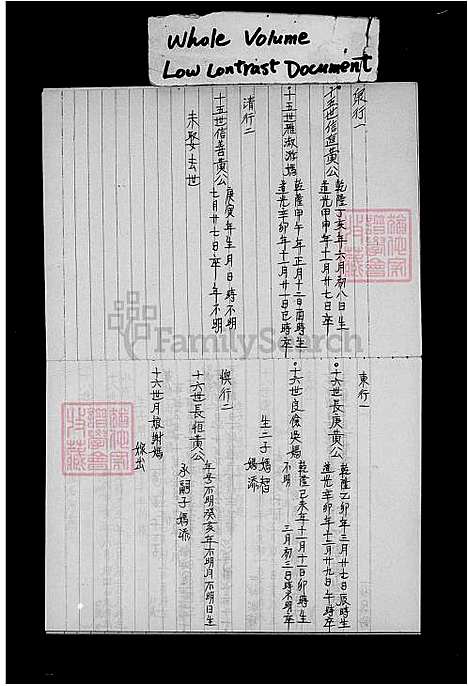 Whole Volume
Low Contrast Document
長行一
十五世信直黃公 乾隆丁亥年六月初八日生
道光甲申年十一月廿七日卒
十五世雅淑游媽 乾隆甲午年正月十二日酉時生
道光辛卯年十一月廿一日巳時卒
清行二
十五世信善黃公 庚寅年生月日時不明
七月廿七日卒年不明
未娶去世
東行一
十六世長庚黃公 乾隆乙卯年三月廿七日辰時生
道光辛卯年十二月廿九日午時卒
十六世良儉吳媽 乾隆己未年十一月十一日卯時生
不明 三月初三日時不明卒
生二子媽智
媽添
娛行二
十六世長恒黃公 年号不明癸亥年不明月不明日生
承嗣子媽添
十六世月娘謝媽
嫁出
FamilySearch